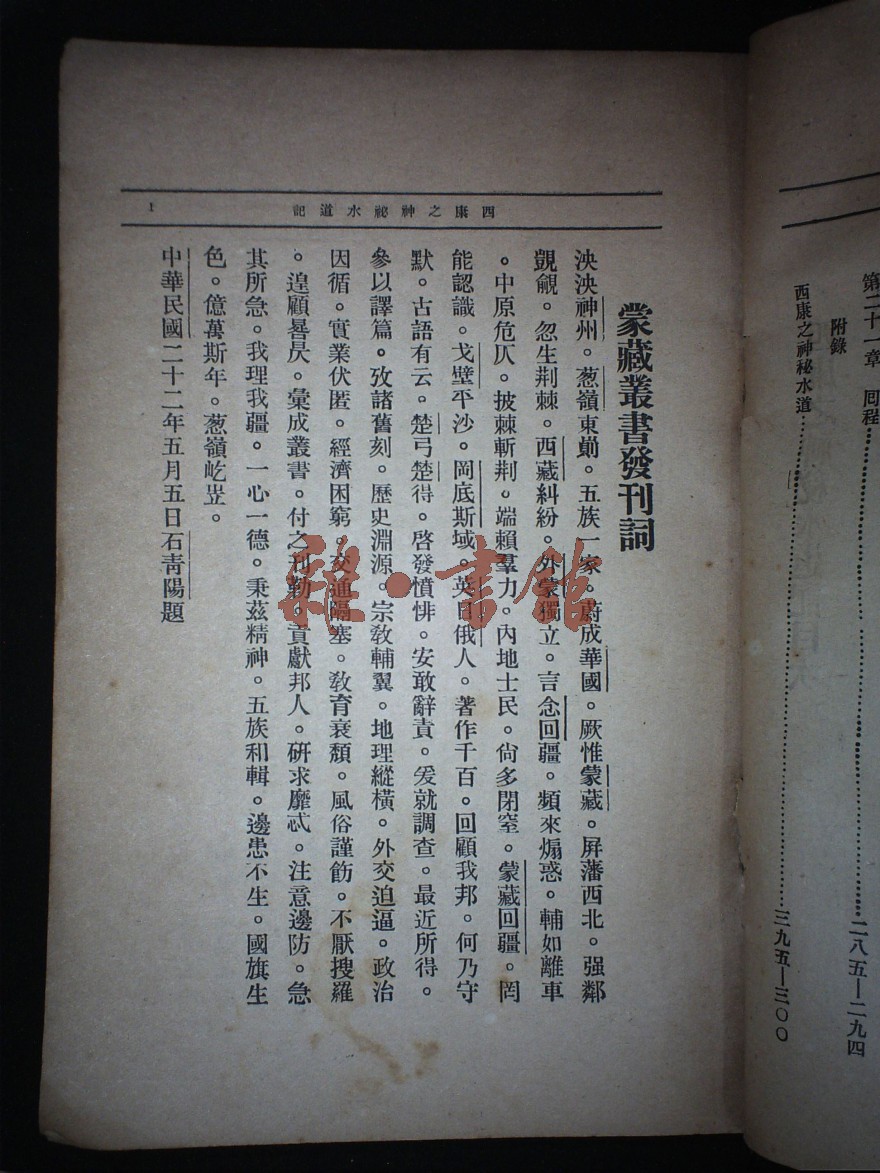 第二十一章 回程……二八五—二九四
附錄
西康之神秘水道……三九五—三〇〇
西康之神祕水道記
1
蒙藏叢書發刊詞
泱泱神州。葱嶺東。五族一家。蔚成華國。厥惟蒙藏。屏藩西北。强鄰
覬覦。忽生荆棘。西藏糾紛。外蒙獨立。言念回疆。頻來煽惑。輔如離車
。中原危仄。披棘斬荆。端賴羣力。內地士民。尙多閉窒。蒙藏回疆。罔
能認識。戈壁平沙。岡底斯域。英日俄人。著作千百。回顧我邦。何乃守
默。古語有云。楚弓楚得。啓發憤悱。安敢辭責。爰就調查。最近所得。
參以譯篇。攷諸舊刻。歷史淵源。宗敎輔翼。地理縱橫。外交迫逼。政治
因循。實業伏匿。經濟困窮。交通隔塞。敎育衰頽。風俗謹飭。不厭搜羅
。遑顧晷昃。彙成叢書。付之刊勒。貢獻邦人。研求靡忒。注意邊防。急
其所急。我理我疆。一心一德。秉茲精神。五族和輯。邊患不生。國旗生
色。億萬斯年。葱嶺屹岦。
中華民國二十二年五月五日石青陽題
雜·書館